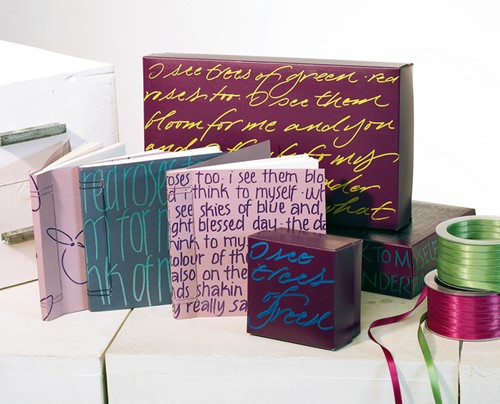 I see trees of green red
roses too. I see them
bloom for me and you
to my
what
red roses
m for m
nk of m
roses too. i see them blo
think to myself. wh
see skies of blue and
ght blessed day. the da
nk to my
colour of th
also on the
ds shakin
y really sa
I see
trees
of green
K TO MYSELF
NDER